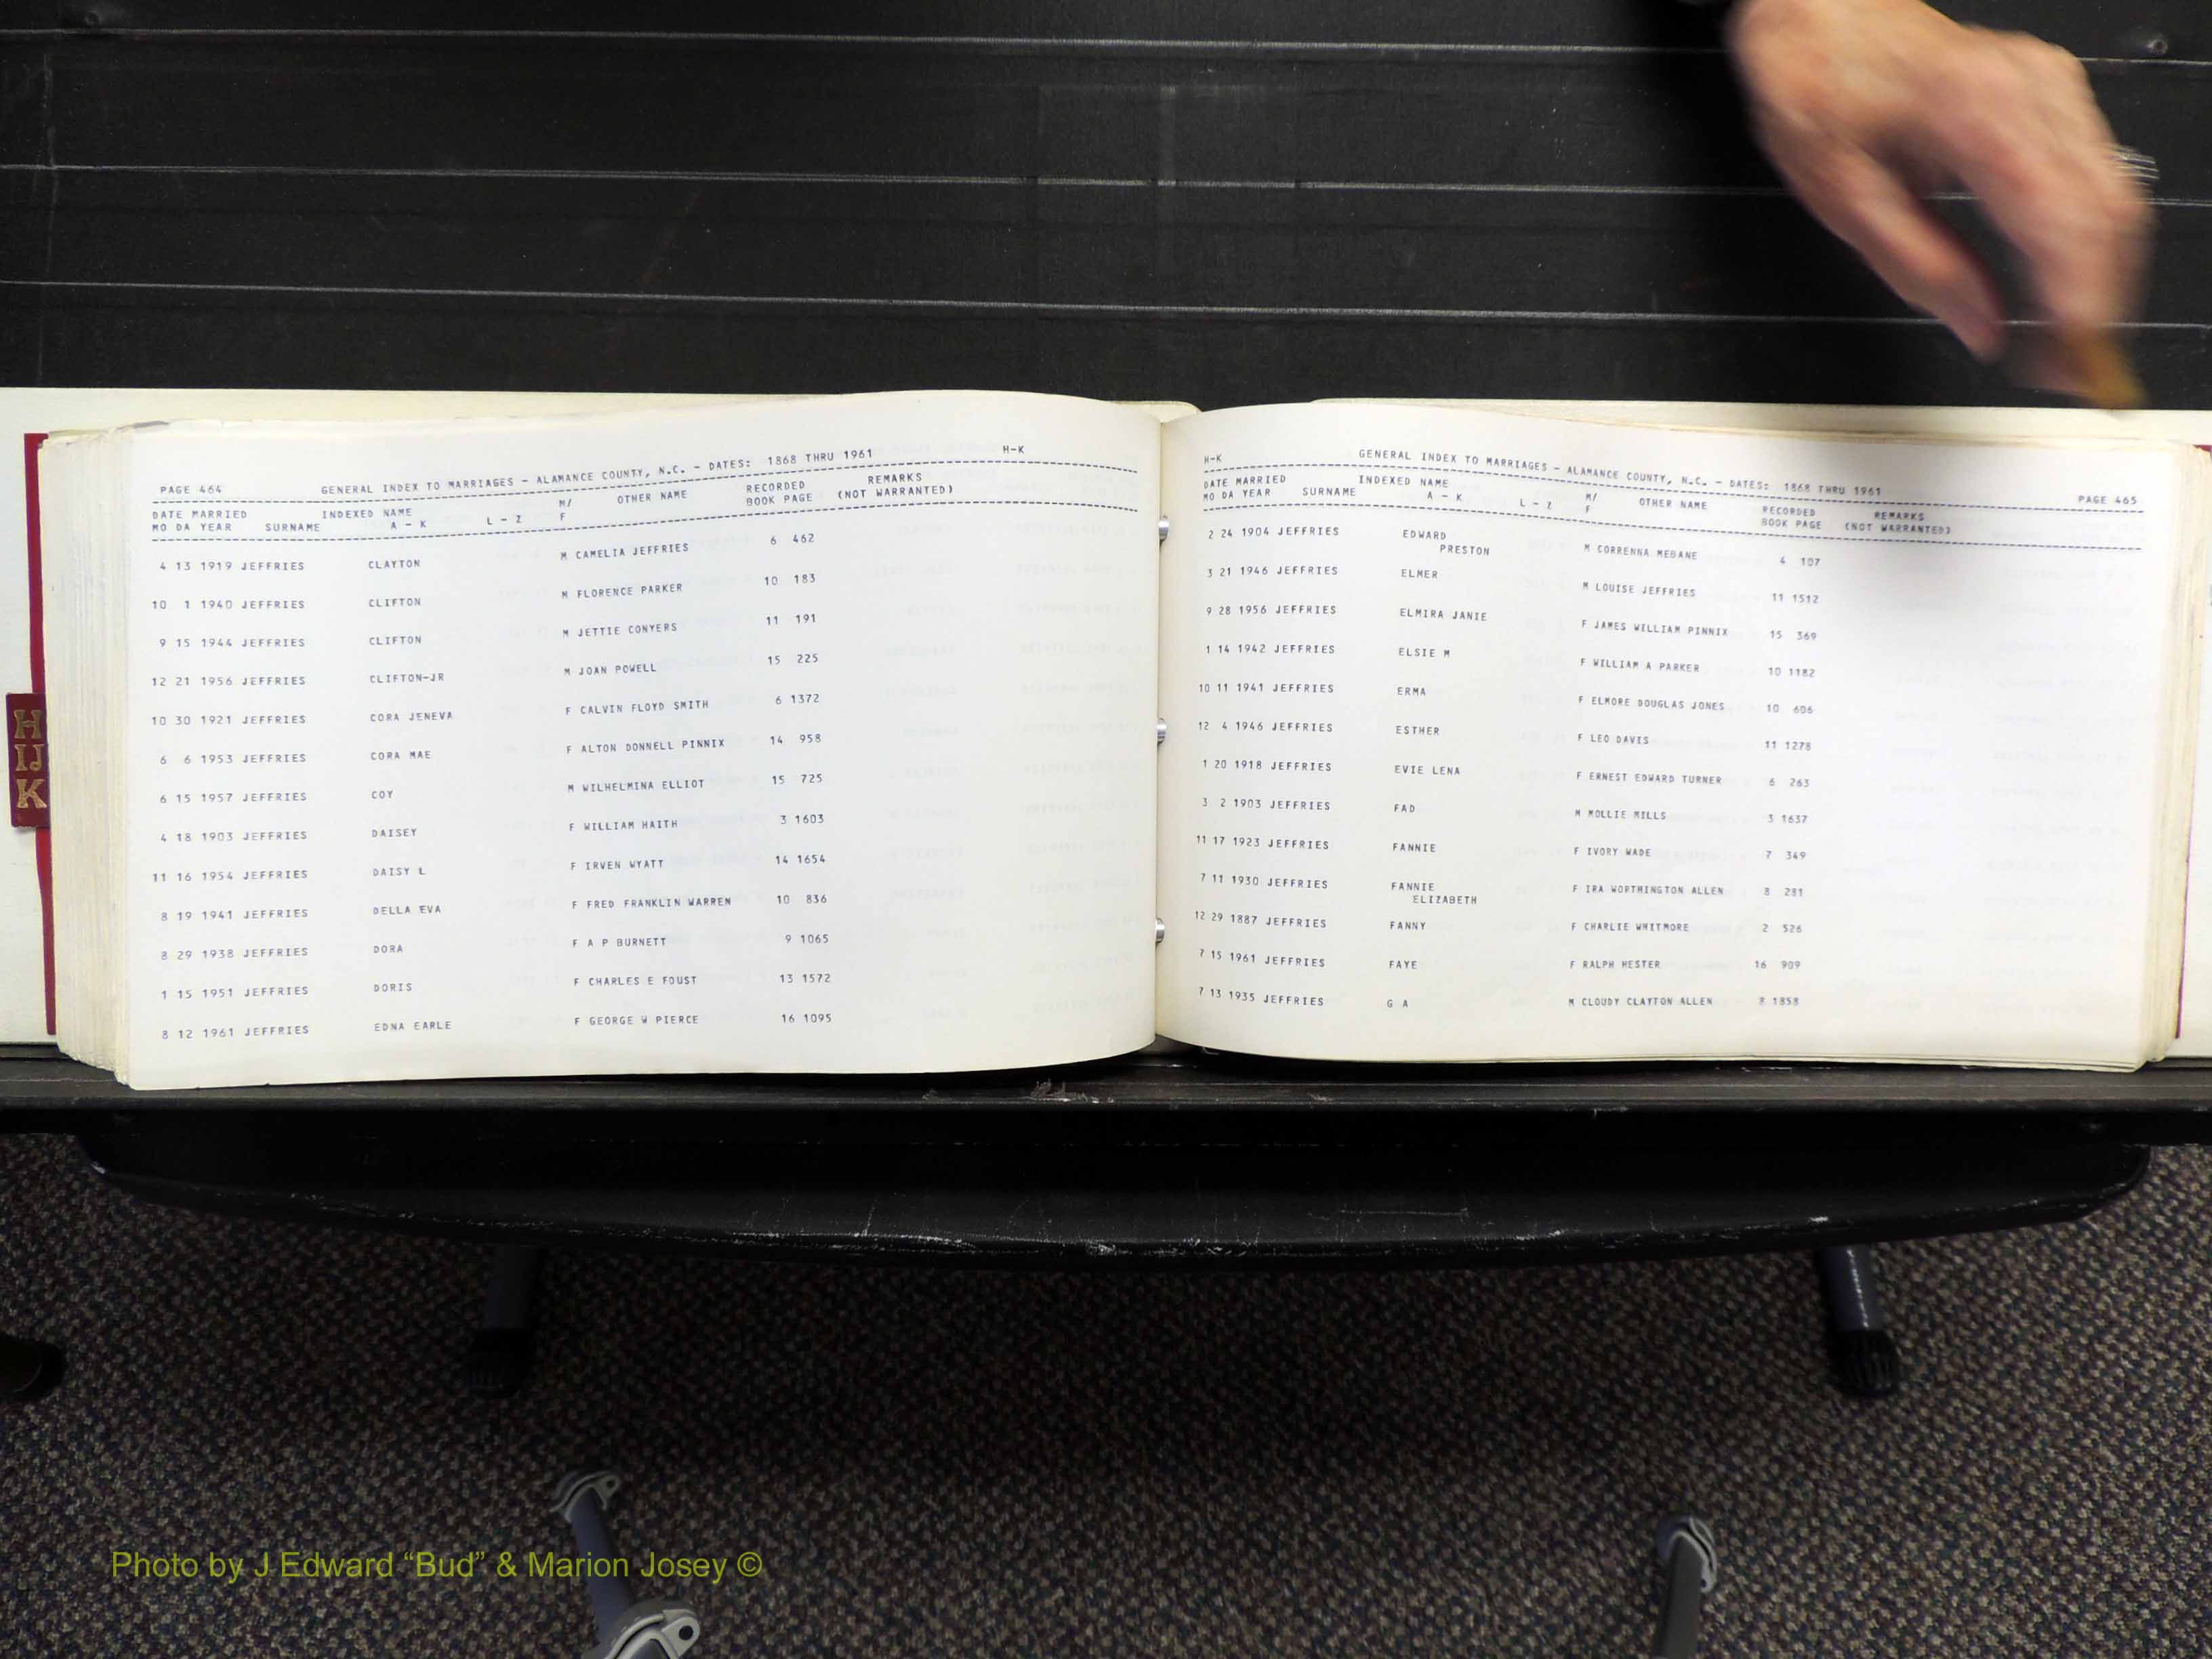 PAGE 464 GENERAL INDEX TO MARRIAGES - ALAMANCE COUNTY, N.C. - DATES: 1868 THRU 1961 H-K
DATE MARRIED INDEXED NAME M/ OTHER NAME RECORDED REMARKS
MO DA YEAR SURNAME A - K L - Z F BOOK PAGE (NOT WARRANTED)
4 13 1919 JEFFRIES CLAYTON M CAMELIA JEFFRIES 6 462
10 1 1940 JEFFRIES CLIFTON M FLORENCE PARKER 10 183
9 15 1944 JEFFRIES CLIFTON M JETTIE CONYERS 11 191
12 21 1956 JEFFRIES CLIFTON-JR M JOAN POWELL 15 225
10 30 1921 JEFFRIES CORA JENEVA F CALVIN FLOYD SMITH 6 1372
6 6 1953 JEFFRIES CORA MAE F ALTON DONNELL PINNIX 14 958
6 15 1957 JEFFRIES COY M WILHELMINA ELLIOT 15 725
4 18 1903 JEFFRIES DAISEY F WILLIAM HAITH 3 1603
11 16 1954 JEFFRIES DAISY L F IRVEN WYATT 14 1654
8 19 1941 JEFFRIES DELLA EVA F FRED FRANKLIN WARREN 10 836
8 29 1938 JEFFRIES DORA F A P BURNETT 9 1065
1 15 1951 JEFFRIES DORIS F CHARLES E FOUST 13 1572
8 12 1961 JEFFRIES EDNA EARLE F GEORGE W PIERCE 16 1095
H-K GENERAL INDEX TO MARRIAGES - ALAMANCE COUNTY, N.C. - DATES: 1868 THRU 1961 PAGE 465
DATE MARRIED INDEXED NAME M/ OTHER NAME RECORDED REMARKS
MO DA YEAR SURNAME A - K L - Z F BOOK PAGE (NOT WARRANTED)
2 24 1904 JEFFRIES EDWARD M CORRENNA MEBANE 4 107
PRESTON
3 21 1946 JEFFRIES ELMER M LOUISE JEFFRIES 11 1512
9 28 1956 JEFFRIES ELMIRA JANIE F JAMES WILLIAM PINNIX 15 369
1 14 1942 JEFFRIES ELSIE M F WILLIAM A PARKER 10 1182
10 11 1941 JEFFRIES ERMA F ELMORE DOUGLAS JONES 10 606
12 4 1946 JEFFRIES ESTHER F LEO DAVIS 11 1278
1 20 1918 JEFFRIES EVIE LENA F ERNEST EDWARD TURNER 6 263
3 2 1903 JEFFRIES FAD M MOLLIE MILLS 3 1637
11 17 1923 JEFFRIES FANNIE F IVORY WADE 7 349
7 11 1930 JEFFRIES FANNIE F IRA WORTHINGTON ALLEN 8 281
ELIZABETH
12 29 1887 JEFFRIES FANNY F CHARLIE WHITMORE 2 526
7 15 1961 JEFFRIES FAYE F RALPH HESTER 16 909
7 13 1935 JEFFRIES G A M CLOUDY CLAYTON ALLEN 8 1858
H
IJ
K
Photo by J Edward “Bud” & Marion Josey ©